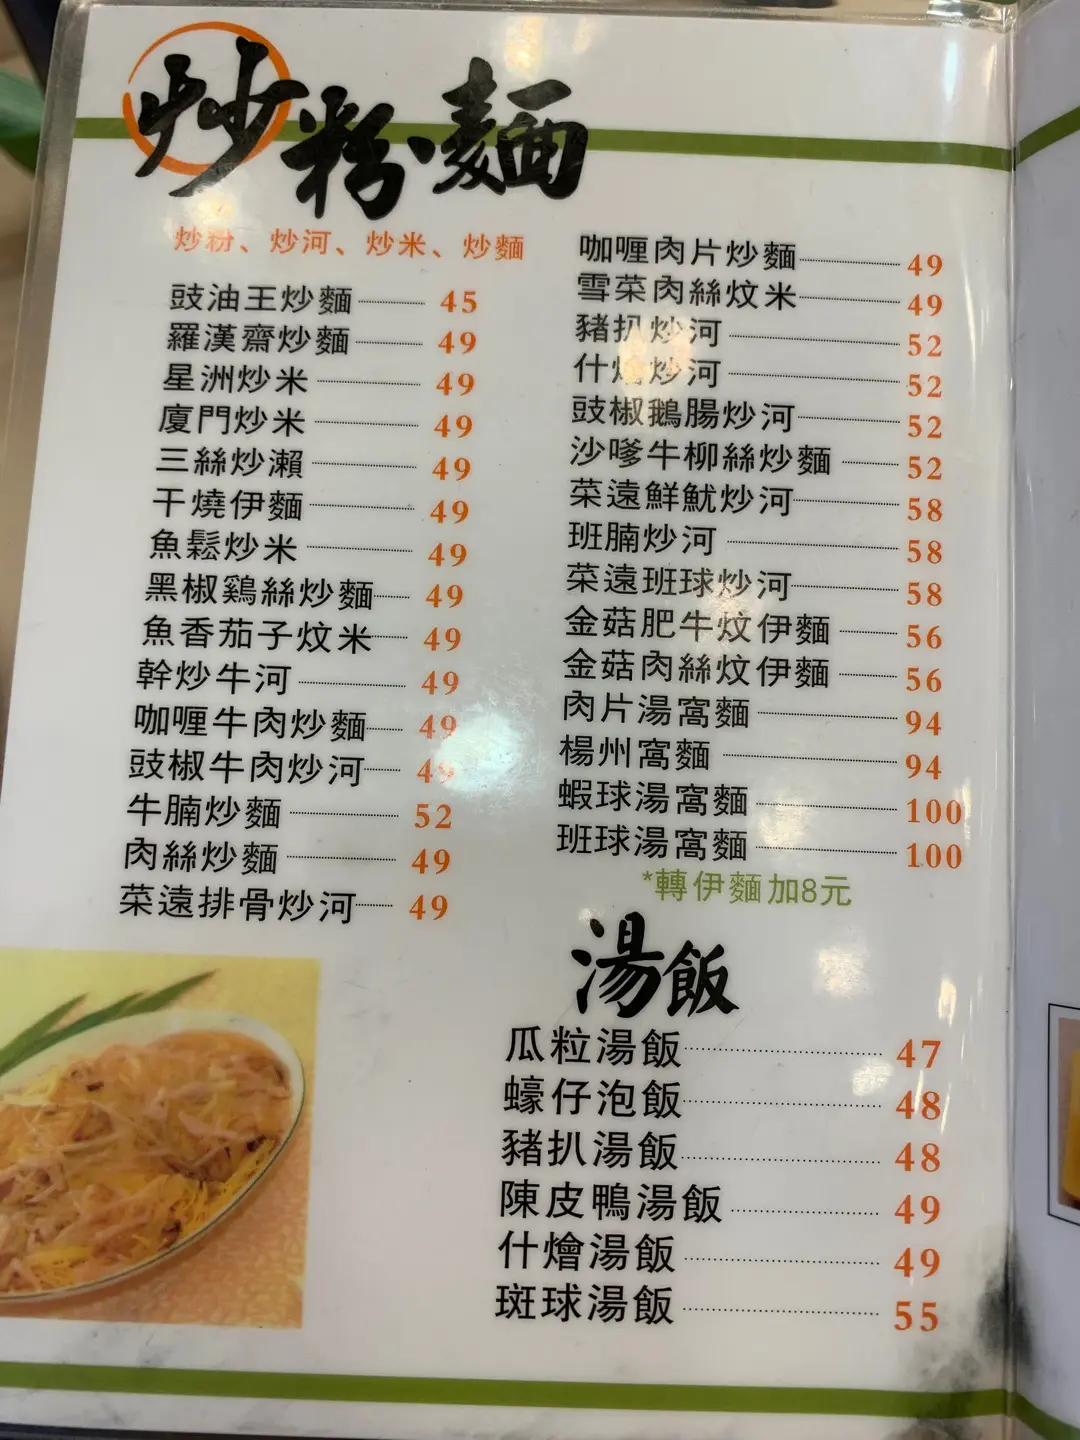 炒粉·麵
炒粉、炒河、炒米、炒麵
豉油王炒麵 45
羅漢齋炒麵 49
星洲炒米 49
廈門炒米 49
三絲炒瀨 49
干燒伊麵 49
魚鬆炒米 49
黑椒鷄絲炒麵 49
魚香茄子炆米 49
幹炒牛河 49
咖喱牛肉炒麵 49
豉椒牛肉炒河 49
牛腩炒麵 52
肉絲炒麵 49
菜遠排骨炒河 49
咖喱肉片炒麵 49
雪菜肉絲炆米 49
豬扒炒河 52
什燴炒河 52
豉椒鵝腸炒河 52
沙嗲牛柳絲炒麵 52
菜遠鮮魷炒河 58
班腩炒河 58
菜遠班球炒河 58
金菇肥牛炆伊麵 56
金菇肉絲炆伊麵 56
肉片湯窩麵 94
楊州窩麵 94
蝦球湯窩麵 100
班球湯窩麵 100
*轉伊麵加8元
湯飯
瓜粒湯飯 47
蠔仔泡飯 48
豬扒湯飯 48
陳皮鴨湯飯 49
什燴湯飯 49
斑球湯飯 55